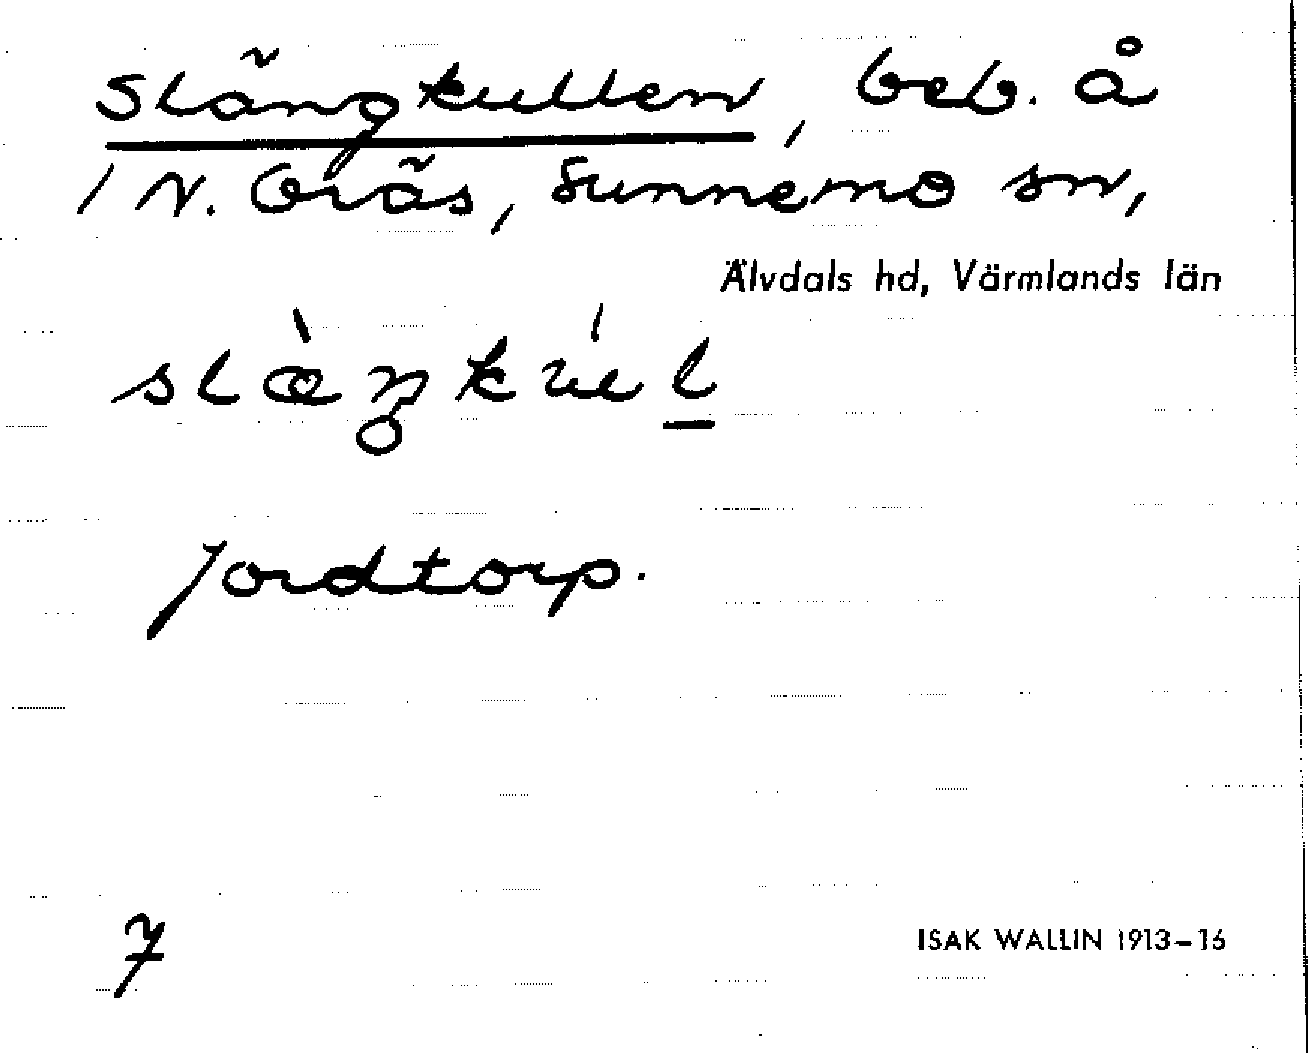 Slängkullen, beb. å
1 N. Bräs, Sunnemo sn,
Älvdals hd, Värmlands län
jordtorp.
7
ISAK WALLIN 1913–16